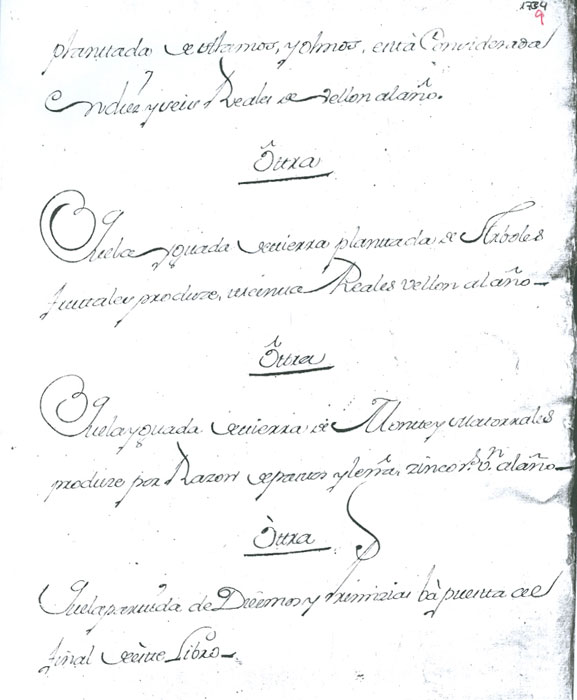 1734
9
plantada de Alamos, y olmos, està Considerada
en diez y seis Reales de vellon al año.
Òttra
Que la yguada de tierra plantada de Arboles
frutales produze, treinta Reales vellon al año
Òttra
Que la yguada de tierra de Monte y Matorrales
produze por Razon de pastos y leña, zinco rs. vn. al año
Òttra
Que la partida de Diezmos y Primizias bà puesta al
final de este Libro